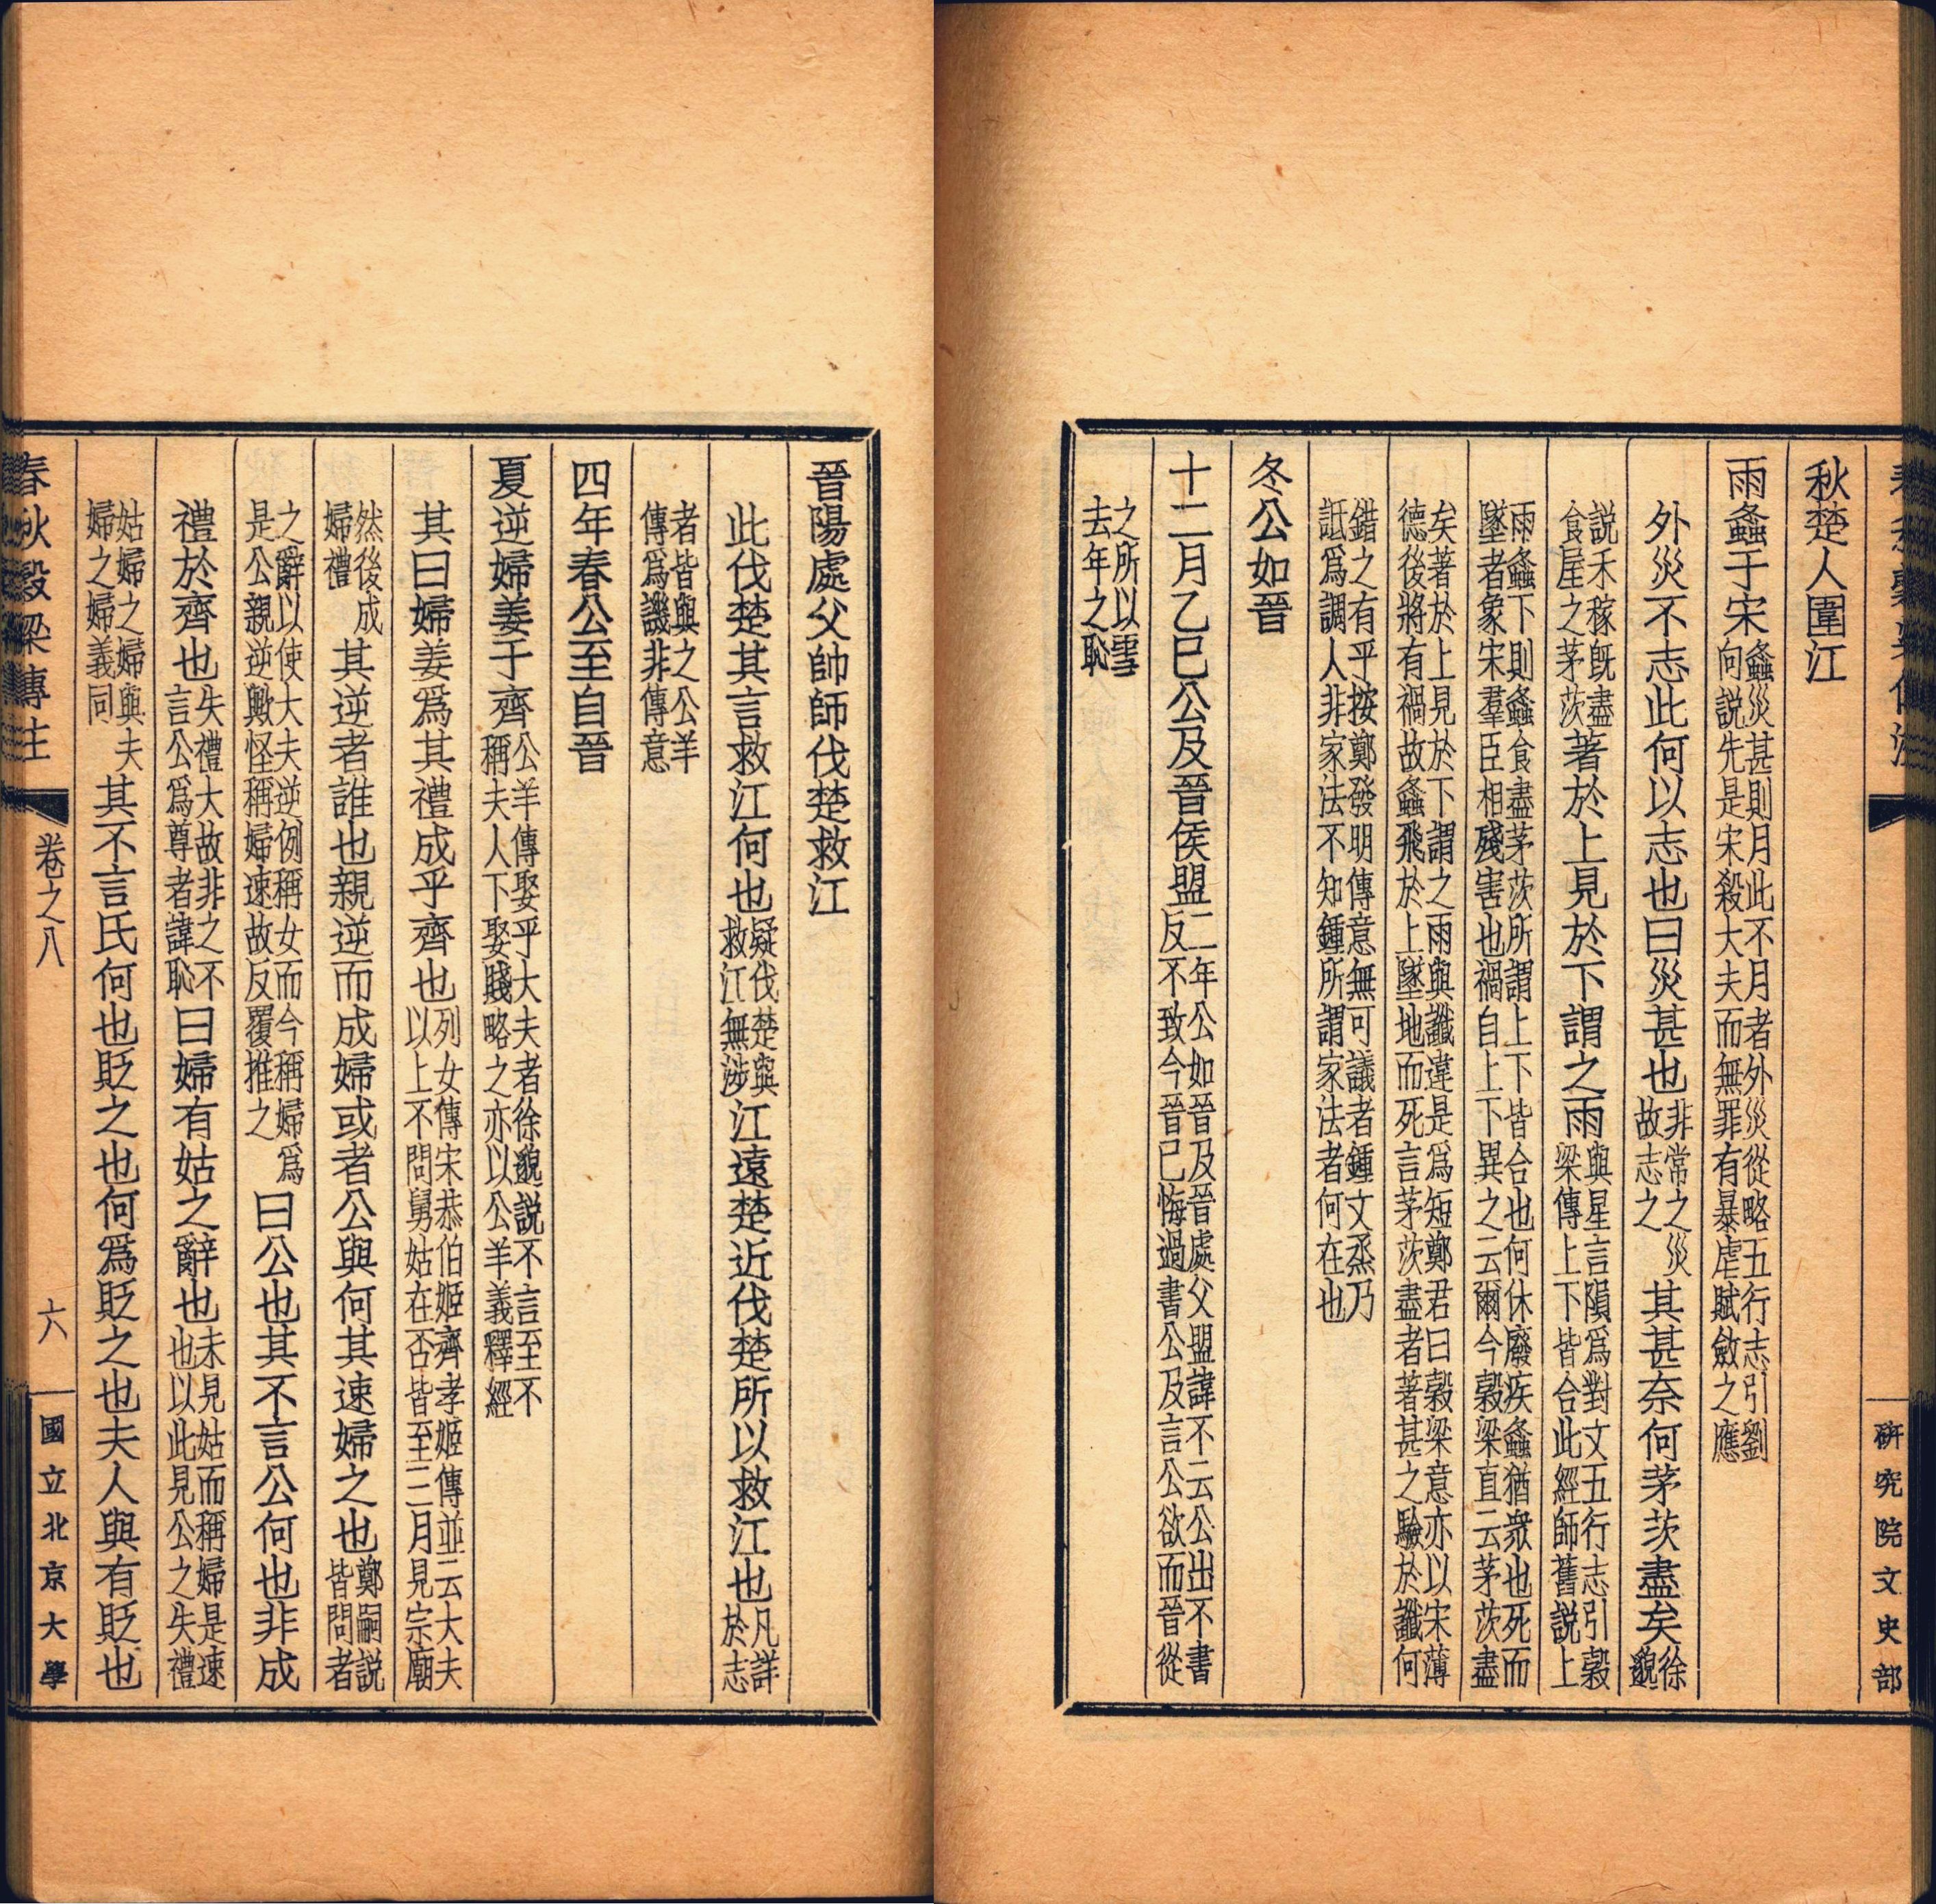 研究院文史部
秋楚人圍江
雨螽于宋螽災甚則月此不月者外災從略五行志引劉向説先是宋殺大夫而無罪有暴虐賦斂之應
外災不志此何以志也曰災甚也非常之災故志之其甚奈何茅茨盡矣徐邈
説禾稼既盡食屋之茅茨著於上見於下謂之雨與星言隕爲對文五行志引穀梁傳上下皆合此經師舊説上
雨螽下則螽食盡茅茨所謂上下皆合也何休廢疾螽猶衆也死而墜者象宋羣臣相殘害也禍自上下異之云爾今穀梁直云茅茨盡
矣著於上見於下謂之雨與讖違是爲短鄭君曰穀梁意亦以宋薄德後將有禍故螽飛於上墜地而死言茅茨盡者著甚之驗於讖何
錯之有乎按鄭發明傳意無可議者鍾文烝乃詆爲調人非家法不知鍾所謂家法者何在也
冬公如晉
十二月乙巳公及晉侯盟二年公如晉及晉處父盟諱不云公出不書反不致今晉已悔過書公及言公欲而晉從
之所以雪去年之恥
晉陽處父帥師伐楚救江
此伐楚其言救江何也疑伐楚與救江無涉江遠楚近伐楚所以救江也凡詳於志
者皆與之公羊傳爲譏非傳意
四年春公至自晉
夏逆婦姜于齊公羊傳娶乎大夫者徐邈説不言至不稱夫人下娶賤略之亦以公羊義釋經
其曰婦姜爲其禮成乎齊也列女傳宋恭伯姬齊孝姬傳並云大夫以上不問舅姑在否皆至三月見宗廟
然後成婦禮其逆者誰也親逆而成婦或者公與何其速婦之也鄭嗣説皆問者
之辭以使大夫逆例稱女而今稱婦爲是公親逆歟怪稱婦速故反覆推之曰公也其不言公何也非成
禮於齊也失禮大故非之不言公爲尊者諱恥曰婦有姑之辭也未見姑而稱婦是速也以此見公之失禮
姑婦之婦與夫婦之婦義同其不言氏何也貶之也何爲貶之也夫人與有貶也
春秋穀梁傳注
卷之八
六
國立北京大學